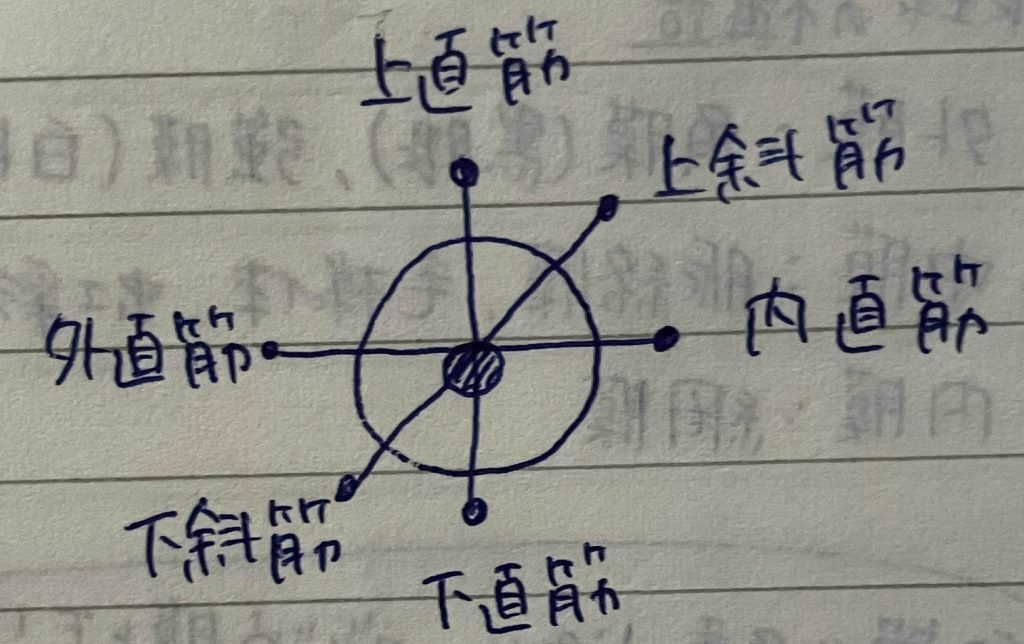 上直筋
上斜筋
内直筋
外直筋
下斜筋
下直筋